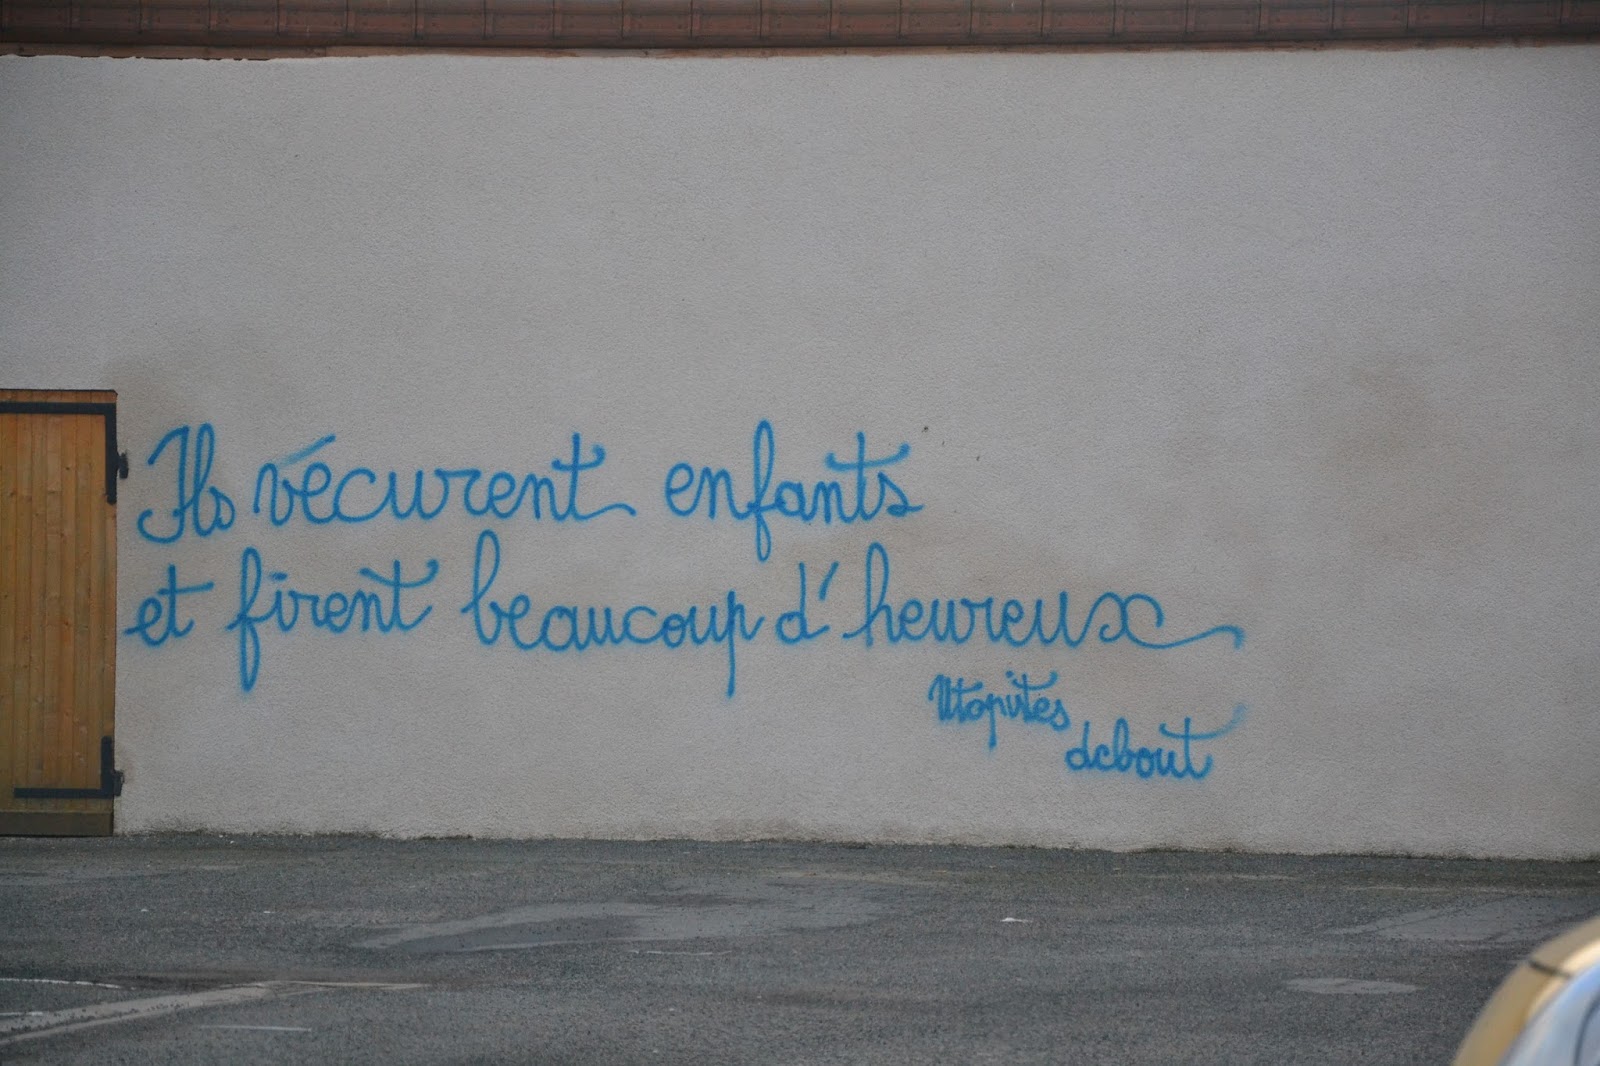 Ils vécurent enfants
et firent beaucoup d'heureux
Utopites
debout